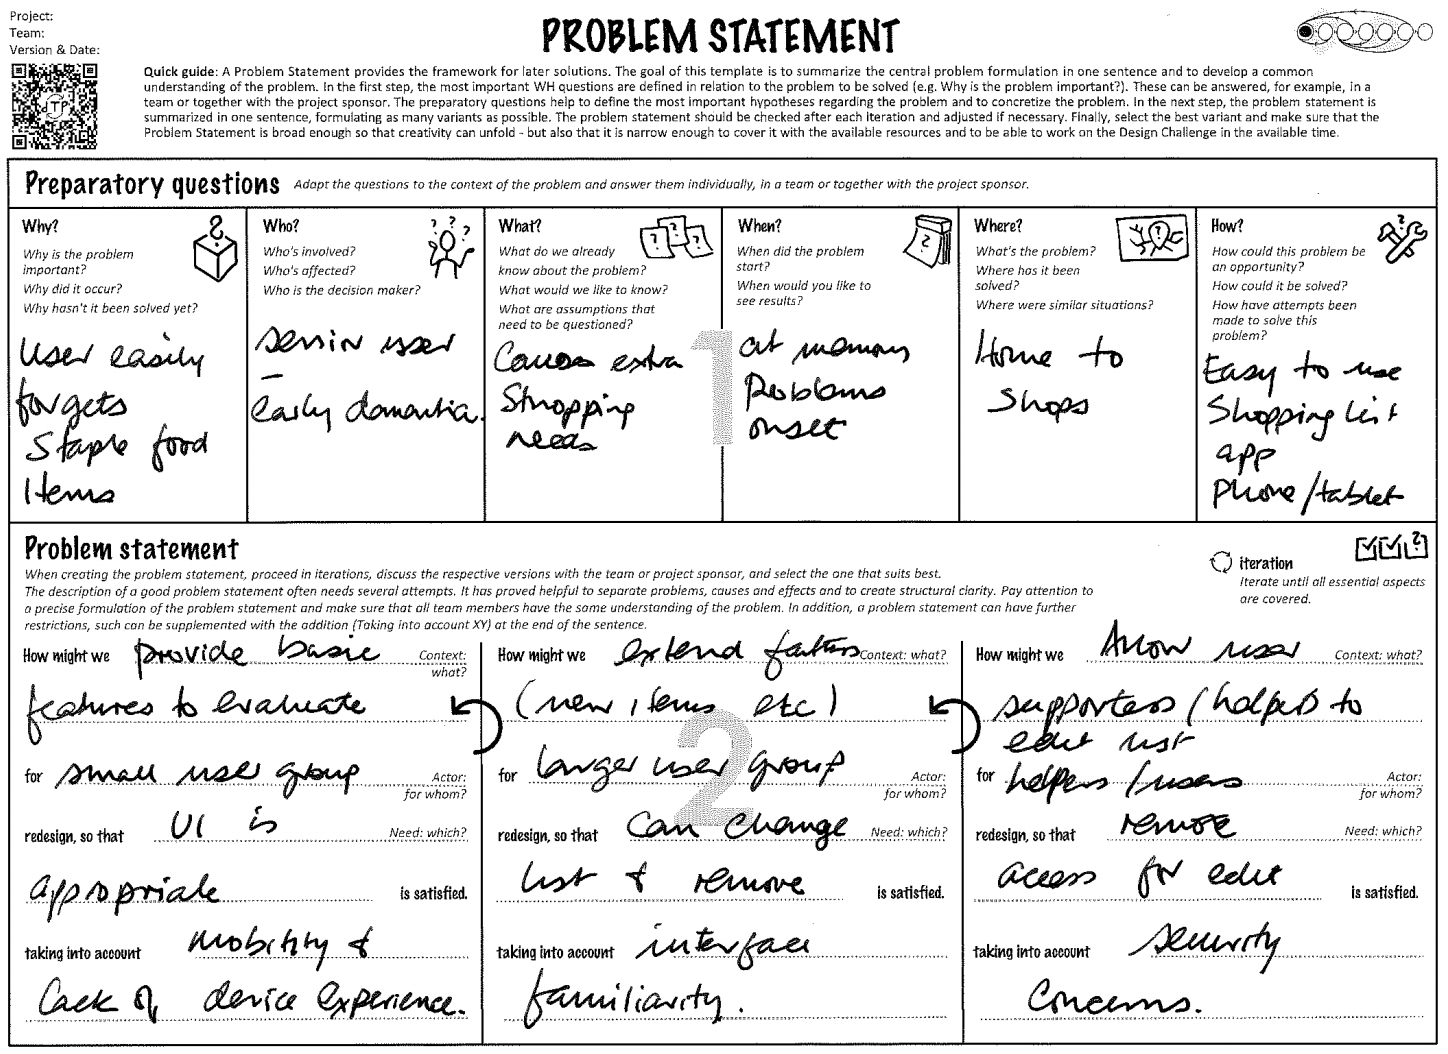 Project:
Team:
Version & Date:
PROBLEM STATEMENT
Quick guide: A Problem Statement provides the framework for later solutions. The goal of this template is to summarize the central problem formulation in one sentence and to develop a common
understanding of the problem. In the first step, the most important WH questions are defined in relation to the problem to be solved (e.g. Why is the problem important?). These can be answered, for example, in a
team or together with the project sponsor. The preparatory questions help to define the most important hypotheses regarding the problem and to concretize the problem. In the next step, the problem statement is
summarized in one sentence, formulating as many variants as possible. The problem statement should be checked after each iteration and adjusted if necessary. Finally, select the best variant and make sure that the
Problem Statement is broad enough so that creativity can unfold - but also that it is narrow enough to cover it with the available resources and to be able to work on the Design Challenge in the available time.
DTP
Preparatory questions Adapt the questions to the context of the problem and answer them individually, in a team or together with the project sponsor.
Why?
Why is the problem
important?
Why did it occur?
Why hasn't it been solved yet?
User easily
forgets
Staple food
Items
Who?
Who's involved?
Who's affected?
Who is the decision maker?
senior user
–
early
What?
What do we already
know about the problem?
What would we like to know?
What are assumptions that
need to be questioned?
Causes extra
Shopping
needs
1
When?
When did the problem
start?
When would you like to
see results?
at memory
Problems
onset
Where?
What's the problem?
Where has it been
solved?
Where were similar situations?
Home to
Shops
How?
How could this problem be
an opportunity?
How could it be solved?
How have attempts been
made to solve this
problem?
Easy to use
Shopping list
app
Phone/tablet
Problem statement
When creating the problem statement, proceed in iterations, discuss the respective versions with the team or project sponsor, and select the one that suits best.
The description of a good problem statement often needs several attempts. It has proved helpful to separate problems, causes and effects and to create structural clarity. Pay attention to
a precise formulation of the problem statement and make sure that all team members have the same understanding of the problem. In addition, a problem statement can have further
restrictions, such can be supplemented with the addition (Taking into account XY) at the end of the sentence.
iteration
Iterate until all essential aspects
are covered.
2
How might we provide basic Context:
what?
features to evaluate
for small user group Actor:
for whom?
redesign, so that UI is Need: which?
appropriate is satisfied.
taking into account Mobility &
Lack of device Experience.
How might we extend Context: what?
(new items etc)
for larger user group Actor:
for whom?
redesign, so that Can change Need: which?
list & remove is satisfied.
taking into account interface
familiarity.
How might we Allow user Context: what?
supporters / helpers to
edit list
for helpers / users Actor:
for whom?
redesign, so that remote Need: which?
access for edit is satisfied.
taking into account security
Concerns.